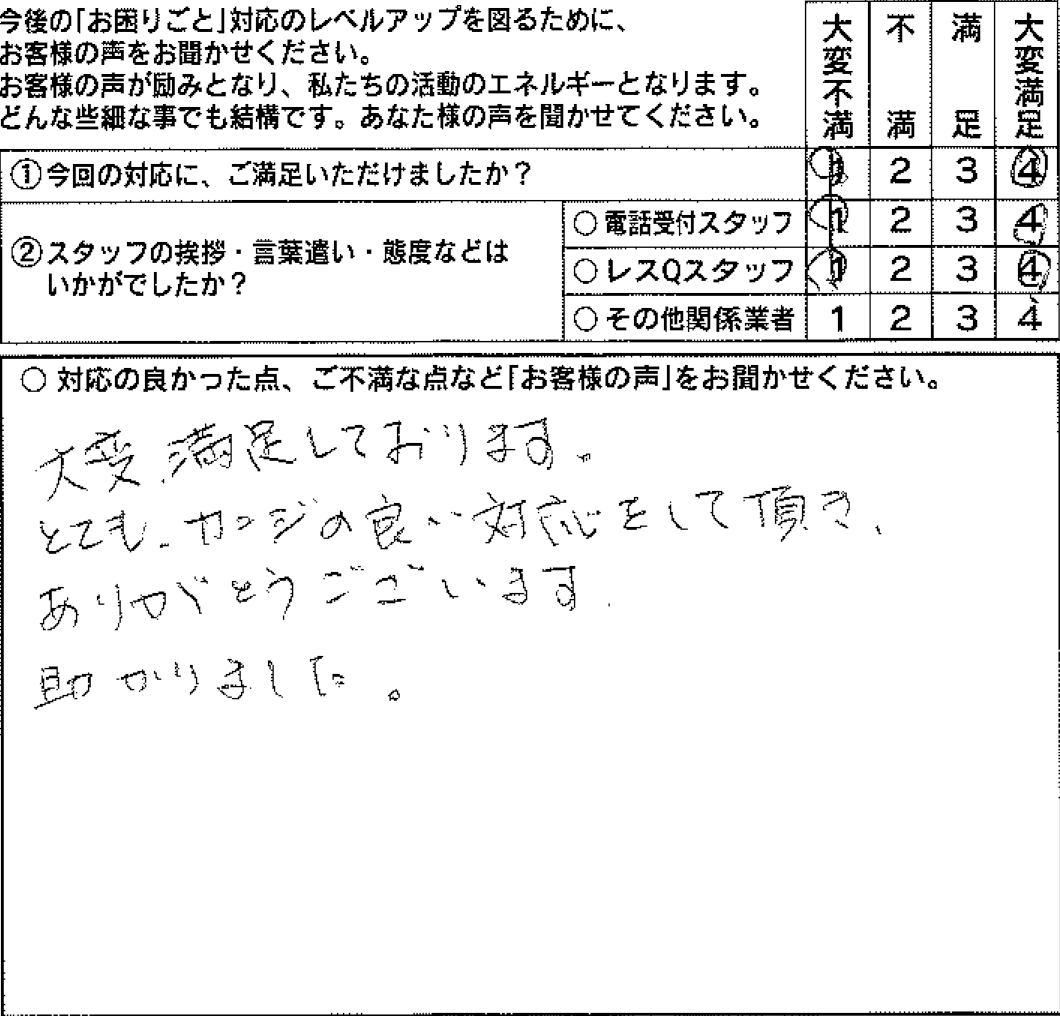 今後の「お困りごと」対応のレベルアップを図るために、
お客様の声をお聞かせください。
お客様の声が励みとなり、私たちの活動のエネルギーとなります。
どんな些細な事でも結構です。あなた様の声を聞かせてください。
大変不満 不満 満足 大変満足
①今回の対応に、ご満足いただけましたか? 1 2 3 4
②スタッフの挨拶・言葉遣い・態度などは
いかがでしたか?
○電話受付スタッフ 1 2 3 4
○レスQスタッフ 1 2 3 4
○その他関係業者 1 2 3 4
○対応の良かった点、ご不満な点など「お客様の声」をお聞かせください。
大変、満足しております。
とても、カンジの良い対応をして頂き、
ありがとうございます.
助かりました。